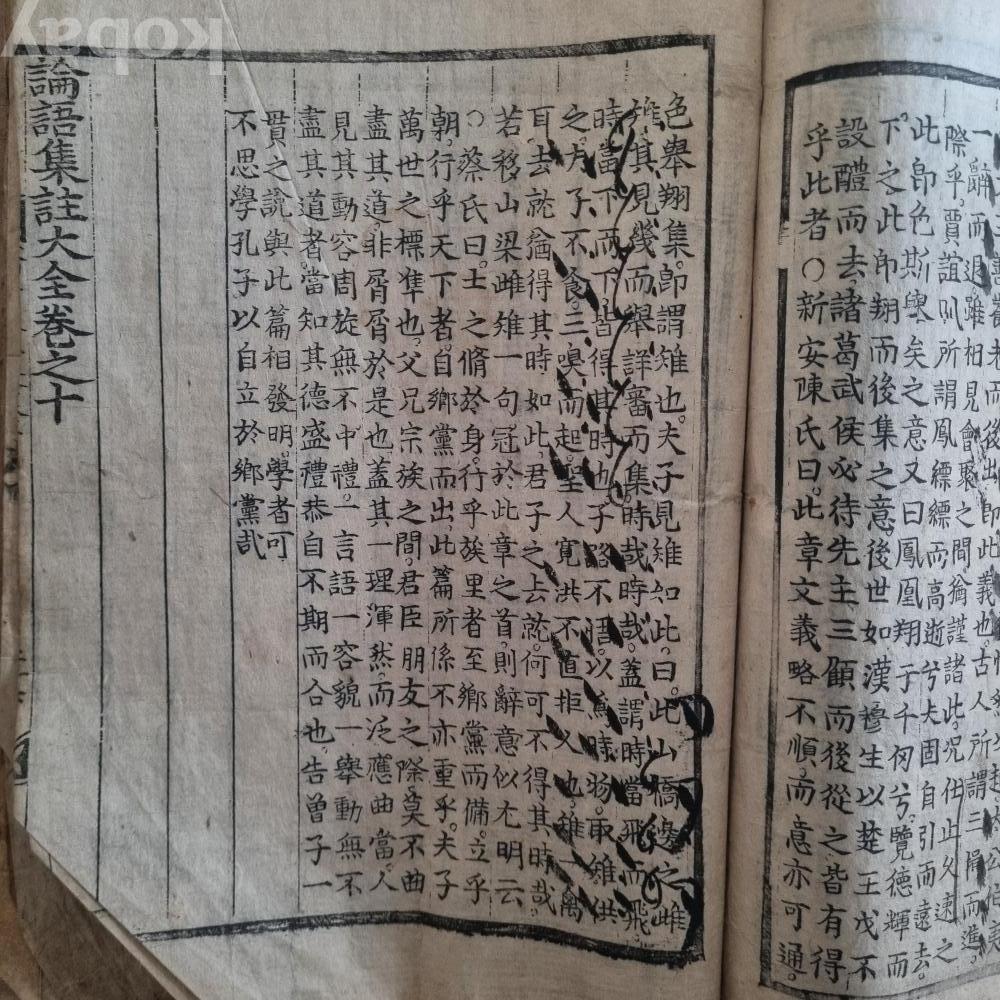 後出卽此義也古人所謂三揖而進
一辭而退雖相見會聚之間猶謹諸此况仕止久速之
際乎賈誼所謂鳳縹縹而高逝兮夫固自引而遠去
此卽色斯擧矣之意又曰鳳凰翔于千仞兮覽德輝而
下之此卽翔而後集之意後世如漢穆生以楚王戊不
設醴而去諸葛武侯必待先主三顧而後從之皆有得
乎此者○新安陳氏曰此章文義略不順而意亦可通
色擧翔集卽謂雉也夫子見雉如此曰此山橋邊之雌
雉其見幾而擧詳審而集時哉時哉蓋謂時當飛而飛
時當下而下皆得其時也子路不悟以爲時物取雉供
之夫子不食三嗅而起聖人寬洪不直拒人也雉一禽
耳去就猶得其時如此君子之去就何可不得其時哉
若移山梁雌雉一句冠於此章之首則辭意似尤明云
○蔡氏曰士之脩於身行乎族里者至鄕黨而備立乎
朝行乎天下者自鄕黨而出此篇所係不亦重乎夫子
萬世之標準也父兄宗族之間君臣朋友之際莫不曲
盡其道非屑屑於是也蓋其一理渾然而泛應曲當人
見其動容周旋無不中禮一言語一容貌一擧動無不
盡其道者當知其德盛禮恭自不期而合也告曾子一
貫之說與此篇相發明學者可
不思學孔子以自立於鄕黨哉
論語集註大全卷之十
kobay